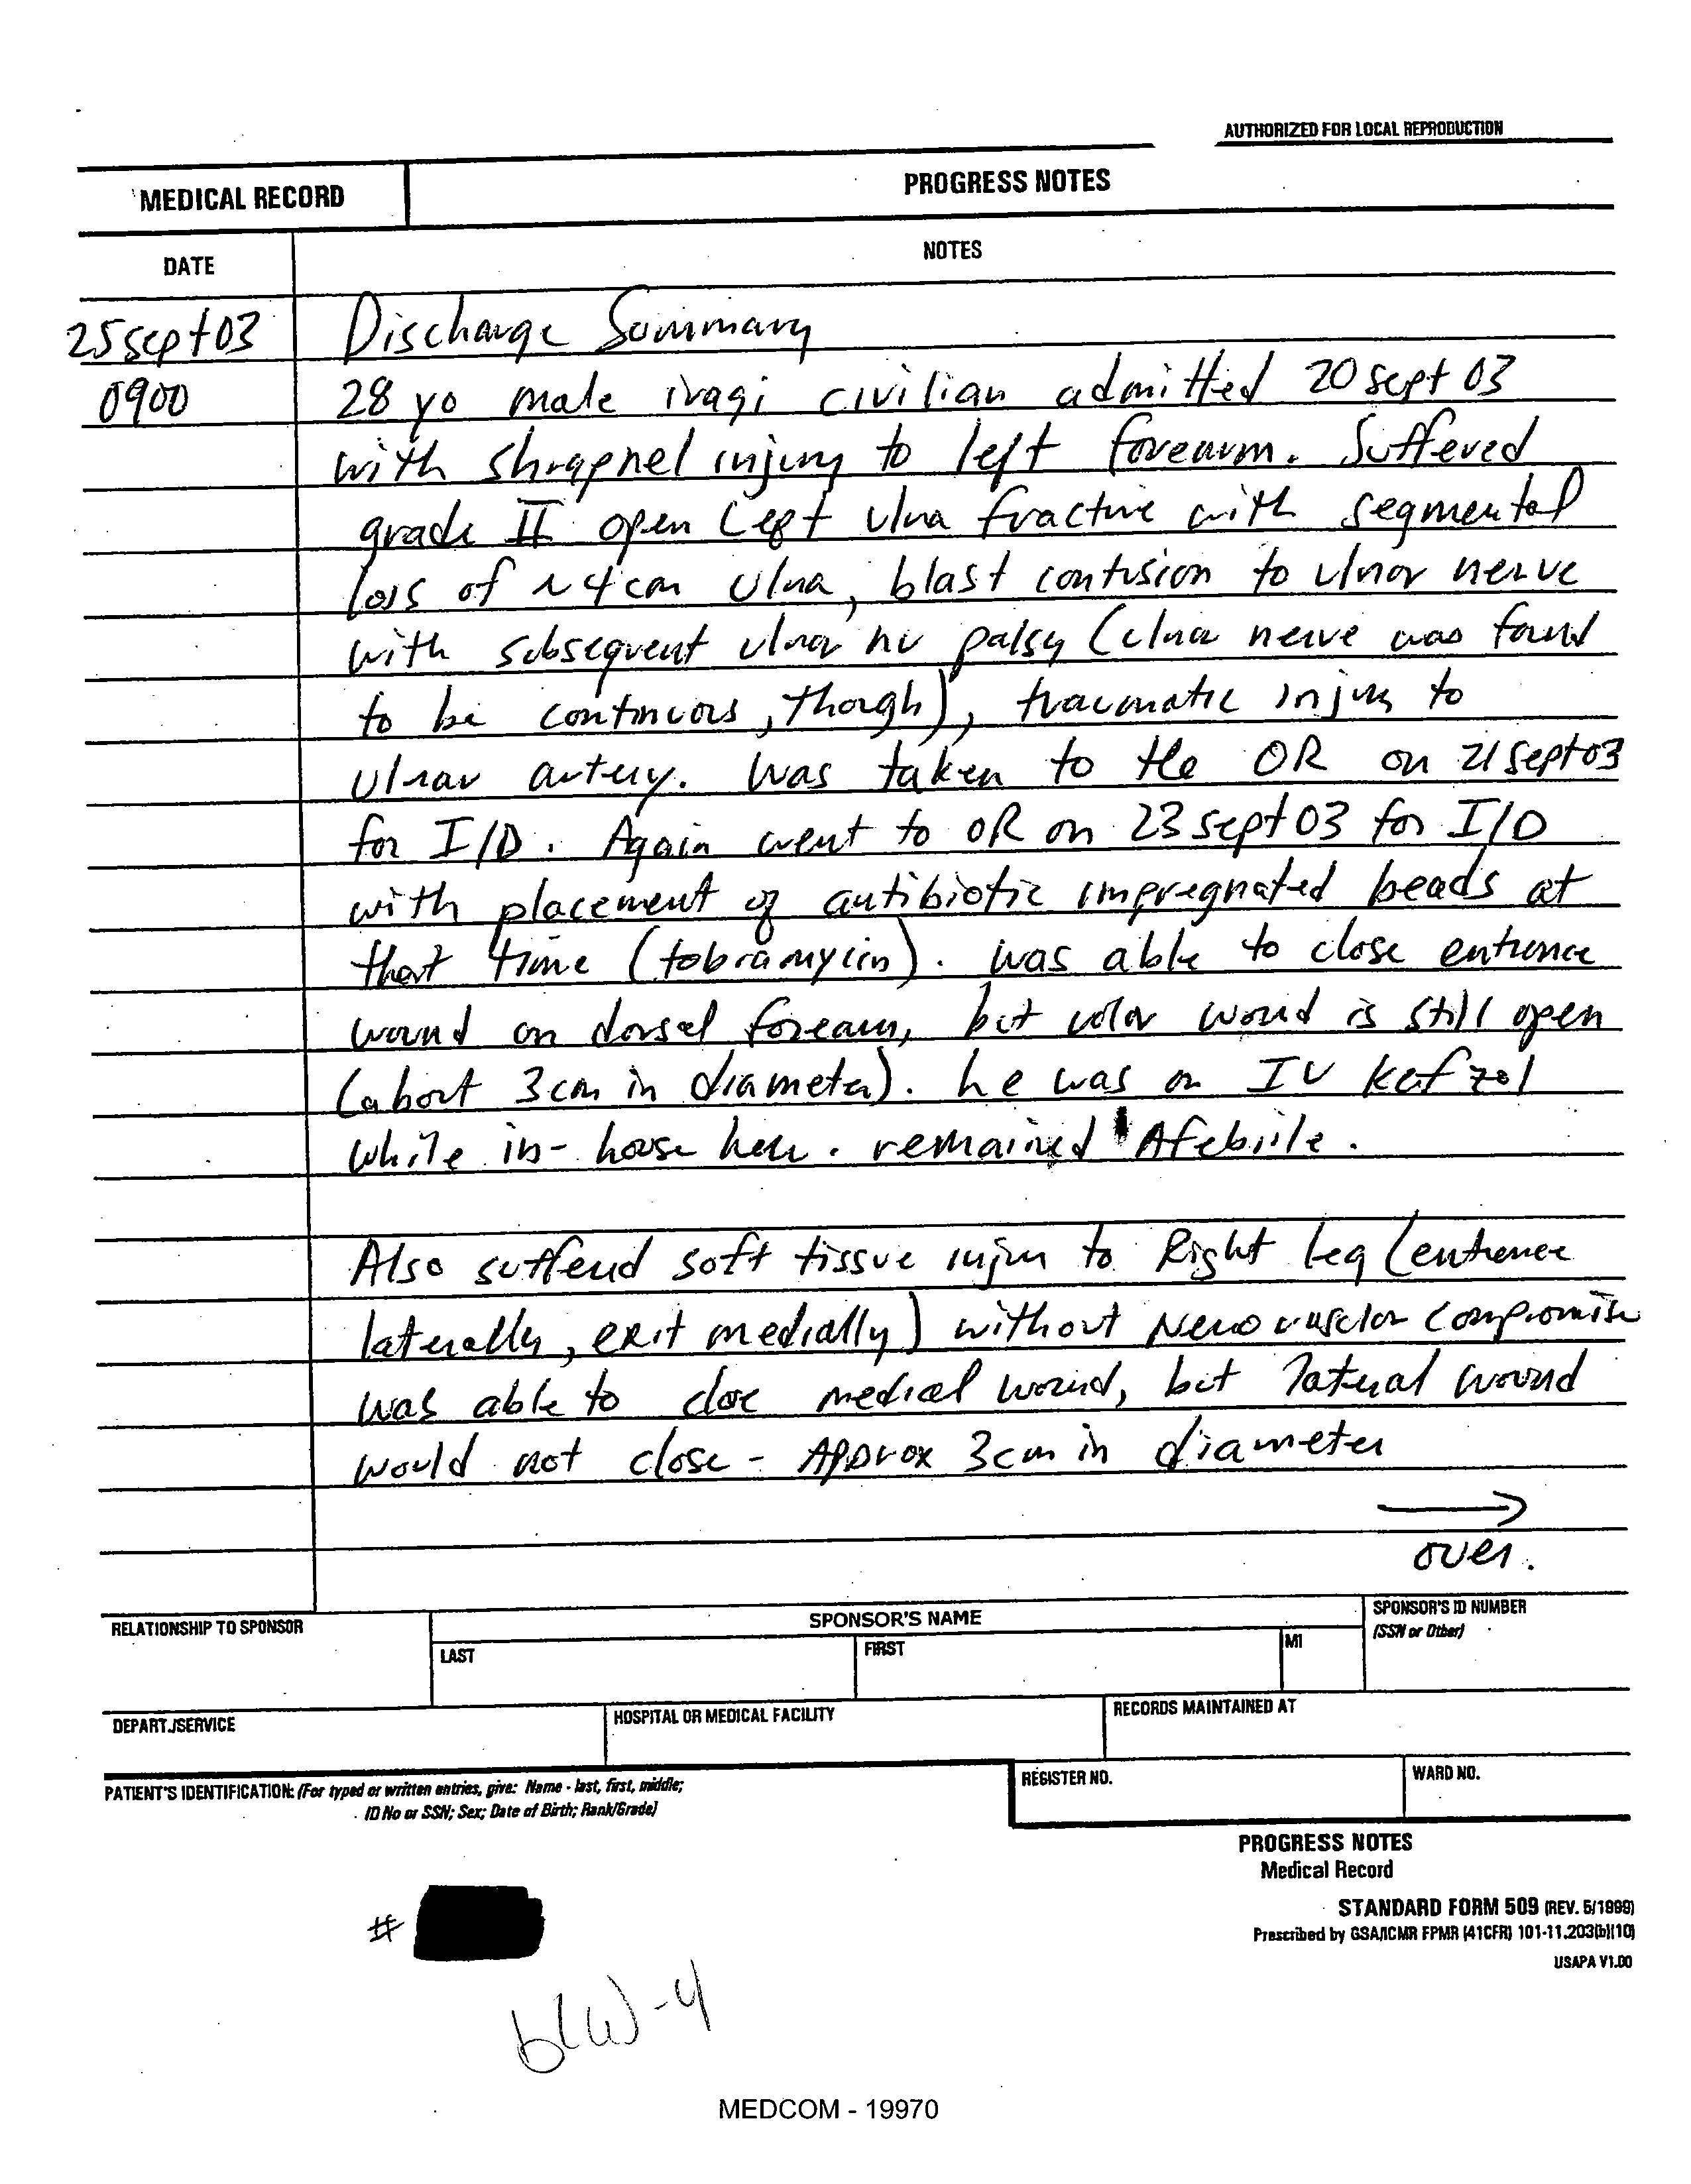 AUTHORIZED FOR LOCAL REPRODUCTION
MEDICAL RECORD
PROGRESS NOTES
DATE
NOTES
25 sept 03
Discharge Summary
0900
28 yo male iraqi civilian admitted 20 sept 03
with shrapnel injury to left forearm. Suffered
grade II open Left ulna fracture with segmental
loss of ~ 4cm ulna, blast contusion to ulnar nerve
with subsequent ulnar nv palsy (ulna nerve was found
to be continuous, though), traumatic injury to
ulnar artery. Was taken to the OR on 21 sept 03
for I/D. Again went to OR on 23 sept 03 for I/D
with placement of antibiotic impregnated beads at
that time (tobramycin). Was able to close entrance
wound on dorsal forearm, but volar wound is still open
(about 3cm in diameter). he was on IV Kefzol
while in-house here. remained Afebrile.
Also suffered soft tissue injury to Right leg (entrance
laterally, exit medially) without Neurovascular compromise
was able to close medial wound, but lateral wound
would not close - Approx 3cm in diameter
→
over.
RELATIONSHIP TO SPONSOR
SPONSOR'S NAME
SPONSOR'S ID NUMBER
(SSN or Other)
LAST
FIRST
MI
DEPART./SERVICE
HOSPITAL OR MEDICAL FACILITY
RECORDS MAINTAINED AT
PATIENT'S IDENTIFICATION: (For typed or written entries, give: Name - last, first, middle;
ID No or SSN; Sex; Date of Birth; Rank/Grade)
REGISTER NO.
WARD NO.
PROGRESS NOTES
Medical Record
STANDARD FORM 509 (REV. 5/1999)
Prescribed by GSA/ICMR FPMR (41CFR) 101-11.203(b)(10)
USAPA V1.00
#
b(6)-4
MEDCOM - 19970